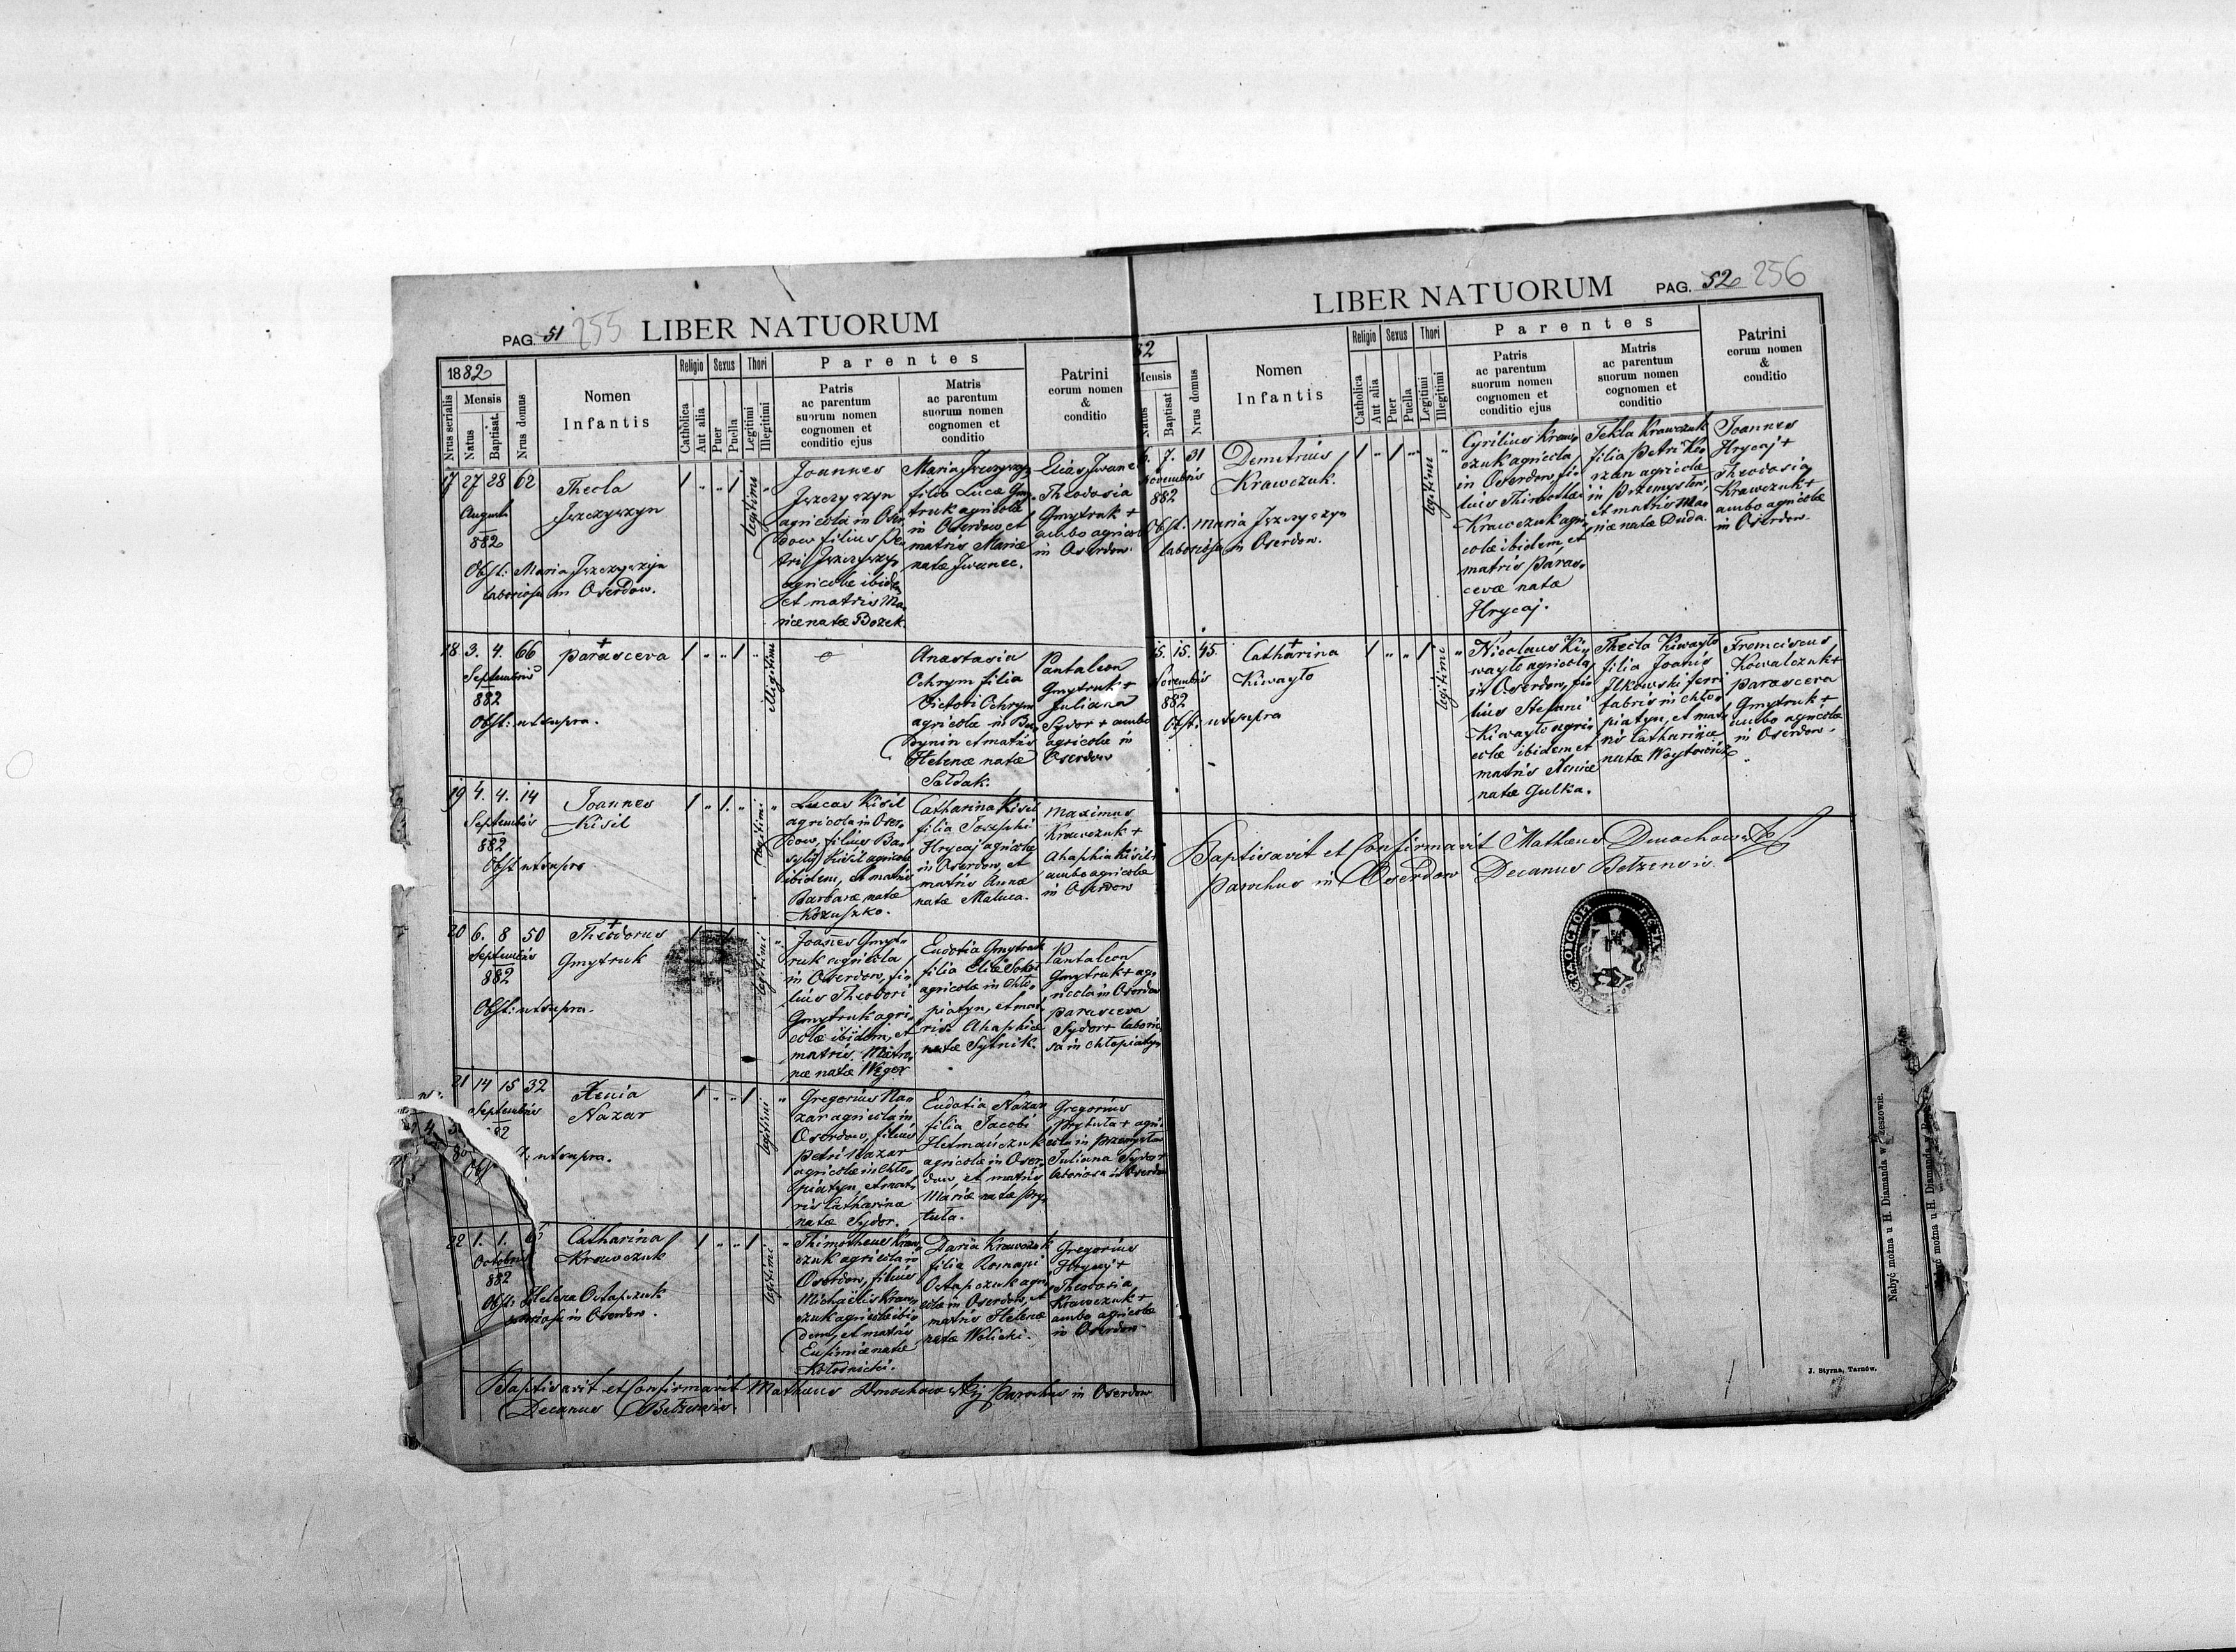 PAG. 51 255 LIBER NATUORUM
1882
Nrus serialis
Mensis
Natus
Baptisat.
Nrus domus
Nomen
Infantis
Religio
Catholica
Aut alia
Sexus
Puer
Puella
Thori
Legitimi
Illegitimi
Parentes
Patris
ac parentum
suorum nomen
cognomen et
conditio ejus
Matris
ac parentum
suorum nomen
cognomen et
conditio
Patrini
eorum nomen
&
conditio
17 27 28 62
Augusti
882
Thecla
Jszczyszyn
Obst: Maria Jszczyszyn
laboriosa in Oserdow.
legitimi
Joannes
Jszczyszyn
agricola in Oser,
dow filius Pe,
tri Jszczyszyn
agricolæ ibidem
et matris Ma,
riæ natæ Bozek.
Maria Jszczyszyn
filia Lucæ Gmy,
truk agricolæ
in Oserdow, et
matris Mariæ
natæ Jwanec.
Elias Jwanec
Theodosia
Gmytruk +
ambo agricolæ
in Oserdow.
18 3. 4. 66
Septembris
882
Parasceva
Obst: ut supra.
illegitimi
Anastasia
Ochrym filia
Victori Ochrym
agricolæ in Bu,
dynin et matris
Helenæ natæ
Sałdak.
Pantaleon
Gmytruk +
Juliana
Sydor + ambo
agricolæ in
Oserdow
19 4. 4. 14
Septembris
882
Joannes
Kisil
Obst ut supra
legitimi
Lucas Kisil
agricola in Oser,
dow, filius Ba,
sylii Kisil agricolæ
ibidem, et matris
Barbaræ natæ
Kozuszko.
Catharina Kisil
filia Josephi
Hrycaj agricolæ
in Oserdow, et
matris Annæ
natæ Maluca.
Maximus
Krawczuk +
Ahaphia Kisil +
ambo agricolæ
in Oserdow
20 6. 8 50
Septembris
882
Theodorus
Gmytruk
Obst: ut supra.
legitimi
Joannes Gmyt,
ruk agricola
in Oserdow, fi,
lius Theodori
Gmytruk agri,
colæ ibidem, et
matris Matro,
næ natæ Węger
Eudotia Gmytruk
filia Eliæ
agricolæ in Chło,
piatyn, et mat,
ris Ahaphiæ
natæ Sytnik.
Pantaleon
Gmytruk + ag,
ricola in Oserdow
Parasceva
Sydor + laborio,
sa in Chłopiatyn
21 14 15 32
Septembris
82
Xenia
Nazar
ut supra.
legitimi
Gregorius Na,
zar agricola in
Oserdow, filius
Petri Nazar
agricolæ in Chło,
piatyn, et mat,
ris Catharinæ
natæ Sydor.
Eudotia Nazar
filia Jacobi
Hetmańczuk
agricolæ in Oser,
dow, et matris
Mariæ natæ Pry,
tuła.
Gregorius
Prytuła + agri,
cola in Przemysłow
Juliana Sydor +
laboriosa in Oserdow
22 1. 1.
Octobris
882
Catharina
Krawczuk
Obst: Helena Ostapczuk
laboriosa in Oserdow.
legitimi
Thimotheus Kraw,
czuk agricola in
Oserdow, filius
Michaëlis Kraw,
czuk agricolæ ibi,
dem, et matris
Eufimiæ natæ
Kołodnicki.
Daria Krawczuk
filia Romani
Ostapczuk agri,
colæ in Oserdow, et
matris Helenæ
natæ Wolicki.
Gregorius
Hrycaj +
Theodosia
Krawczuk +
ambo agricolæ
in Oserdow
Baptisavit et Confirmavit Mathæus Dmochowskij Parochus in Oserdow
Decanus Bełzensis.
LIBER NATUORUM PAG. 52 256
82
Mensis
Natus
Baptisat
Nrus domus
Nomen
Infantis
Religio
Catholica
Aut alia
Sexus
Puer
Puella
Thori
Legitimi
Illegitimi
Parentes
Patris
ac parentum
suorum nomen
cognomen et
conditio ejus
Matris
ac parentum
suorum nomen
cognomen et
conditio
Patrini
eorum nomen
&
conditio
6. 7. 31
Novembris
882
Demetrius
Krawczuk.
Obst. Maria Jszczyszyn
laboriosa in Oserdow.
legitimi
Cyrilius Kraw,
czuk agricola
in Oserdow, fi,
lius Thimothei
Krawczuk agri,
colæ ibidem, et
matris Paras,
cevæ natæ
Hrycaj.
Tekla Krawczuk
filia Petri Ko,
rzan agricolæ
in Przemysłow,
et matris Ma,
riæ natæ Duda.
Joannes
Hrycaj +
Theodosia
Krawczuk +
ambo agricolæ
in Oserdow.
15. 15. 45
Novembris
882
Catharina
Kiwayło
Obst. ut supra
legitimi
Nicolaus Ki,
wayło agricola
in Oserdow, fi,
lius Stefani
Kiwayło agri,
colæ ibidem et
matris Xeniæ
natæ Gulka.
Thecla Kiwayło
filia Joanis
Ilkowski ferri
fabris in Chło,
piatyn, et mat,
ris Catharinæ
natæ Woytowicz
Franciscus
Kowalczuk +
Parasceva
Gmytruk +
ambo agricolæ
in Oserdow.
Baptisavit et Confirmavit Mathæus Dmochowskij
Parochus in Oserdow Decanus Bełzensis.
Nabyć można u H. Diamanda w Rzeszowie.
J. Styrna, Tarnów.